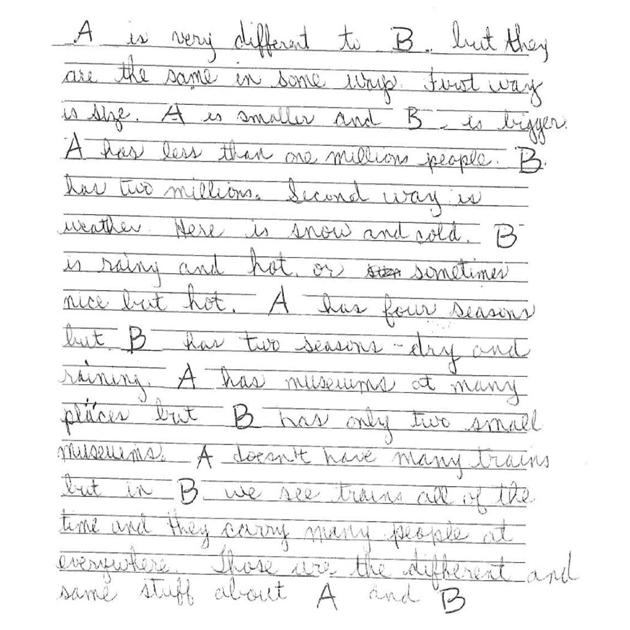 A is very different to B. but they
are the same in some ways. First way
is size. A is smaller and B. is bigger.
A has less than one millions people. B.
has two millions. Second way is
weather. Here is snow and cold. B
is rainy and hot. or sometimes
nice but hot. A has four seasons
but B has two seasons - dry and
raining. A has museums at many
places but B has only two small
museums. A doesn't have many trains
but in B we see trains all of the
time and they carry many people at
everywhere. Those are the different and
same stuff about A and B